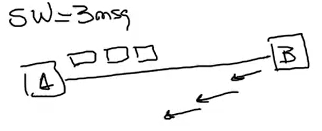 SW=3msg
A
B